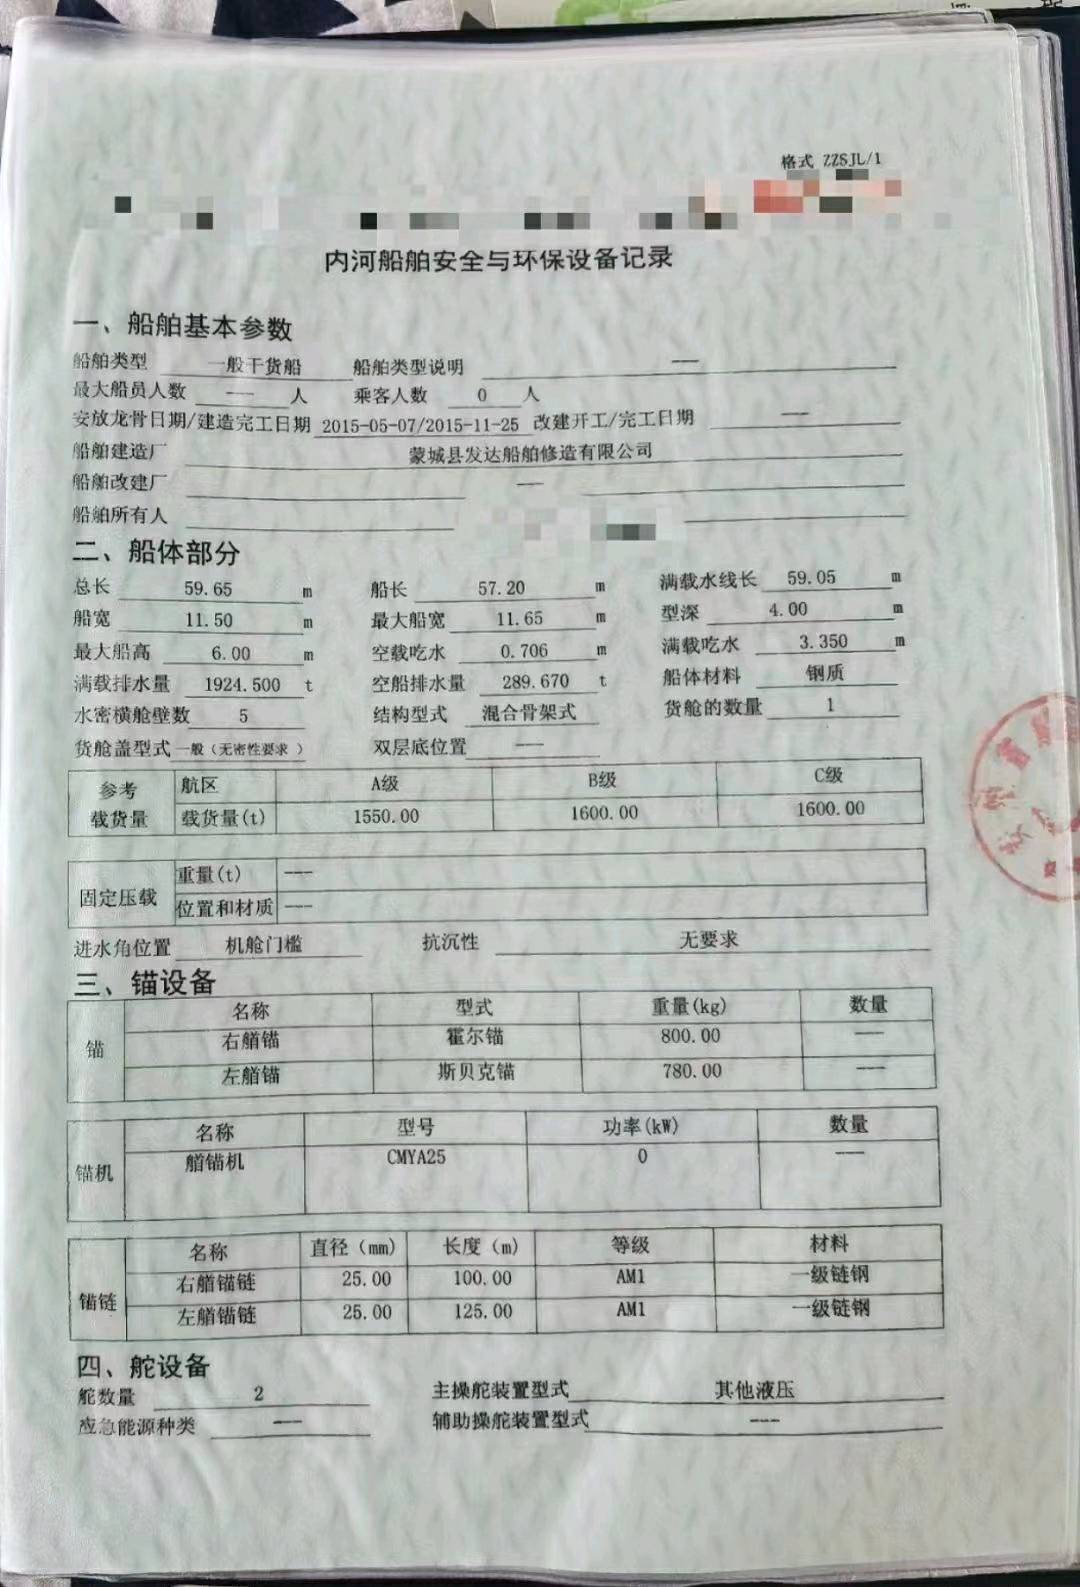 格式 ZZSJL/1
内河船舶安全与环保设备记录
一、船舶基本参数
船舶类型 一般干货船 船舶类型说明 ---
最大船员人数 --- 人 乘客人数 0 人
安放龙骨日期/建造完工日期 2015-05-07/2015-11-25 改建开工/完工日期 ---
船舶建造厂 蒙城县发达船舶修造有限公司
船舶改建厂 ---
船舶所有人
二、船体部分
总长 59.65 m 船长 57.20 m 满载水线长 59.05 m
船宽 11.50 m 最大船宽 11.65 m 型深 4.00 m
最大船高 6.00 m 空载吃水 0.706 m 满载吃水 3.350 m
满载排水量 1924.500 t 空船排水量 289.670 t 船体材料 钢质
水密横舱壁数 5 结构型式 混合骨架式 货舱的数量 1
货舱盖型式 一般（无密性要求） 双层底位置 ---
参考载货量 航区 A级 B级 C级
载货量(t) 1550.00 1600.00 1600.00
固定压载 重量(t) ---
位置和材质 ---
进水角位置 机舱门槛 抗沉性 无要求
三、锚设备
锚 名称 型式 重量(kg) 数量
右艏锚 霍尔锚 800.00 ---
左艏锚 斯贝克锚 780.00 ---
锚机 名称 型号 功率(kW) 数量
艏锚机 CMYA25 0 ---
锚链 名称 直径（mm） 长度（m） 等级 材料
右艏锚链 25.00 100.00 AM1 一级链钢
左艏锚链 25.00 125.00 AM1 一级链钢
四、舵设备
舵数量 2 主操舵装置型式 其他液压
应急能源种类 --- 辅助操舵装置型式 ---